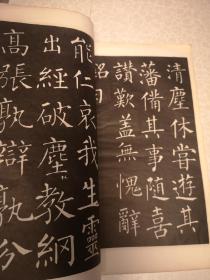 清塵休甞遊其
藩備其事随喜
讚歎盖無愧辭
銘曰
能仁哀我生靈
出經破塵教網
高張孰辯孰分